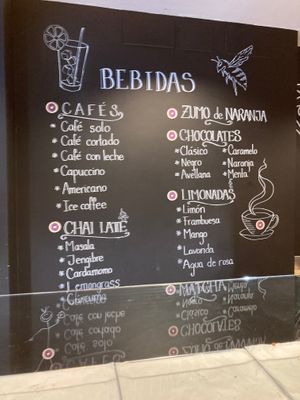 BEBIDAS
CAFÉS
* Café solo
* Café cortado
* Café con leche
* Capuccino
* Americano
* Ice coffee
CHAI LATTE
* Masala
* Jengibre
* Cardamomo
* Lemongrass
ZUMO de NARANJA
CHOCOLATES
* Clásico * Caramelo
* Negro * Naranja
* Avellana * Menta
LIMONADAS
* Limón
* Frambuesa
* Mango
* Lavanda
* Agua de rosa
MATCHA